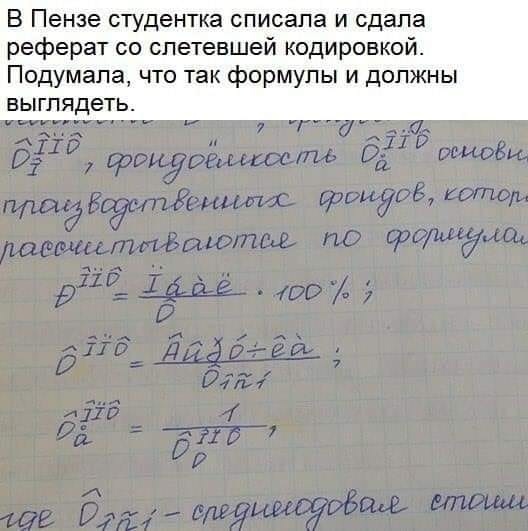 В Пензе студентка списала и сдала
реферат со слетевшей кодировкой.
Подумала, что так формулы и должны
выглядеть.
, фондоёмкость основн
производственных фондов, котор
рассчитываются по формулам
Ð ÎÏÔ = Ïáàë / Ô · 100% ;
Ô ÎÏÔ = Âûðó÷êà / Ôîñí ;
Ôå ÎÏÔ = 1 / Ô ÎÏÔ ,
где Ôîñí – среднегодовая стоим